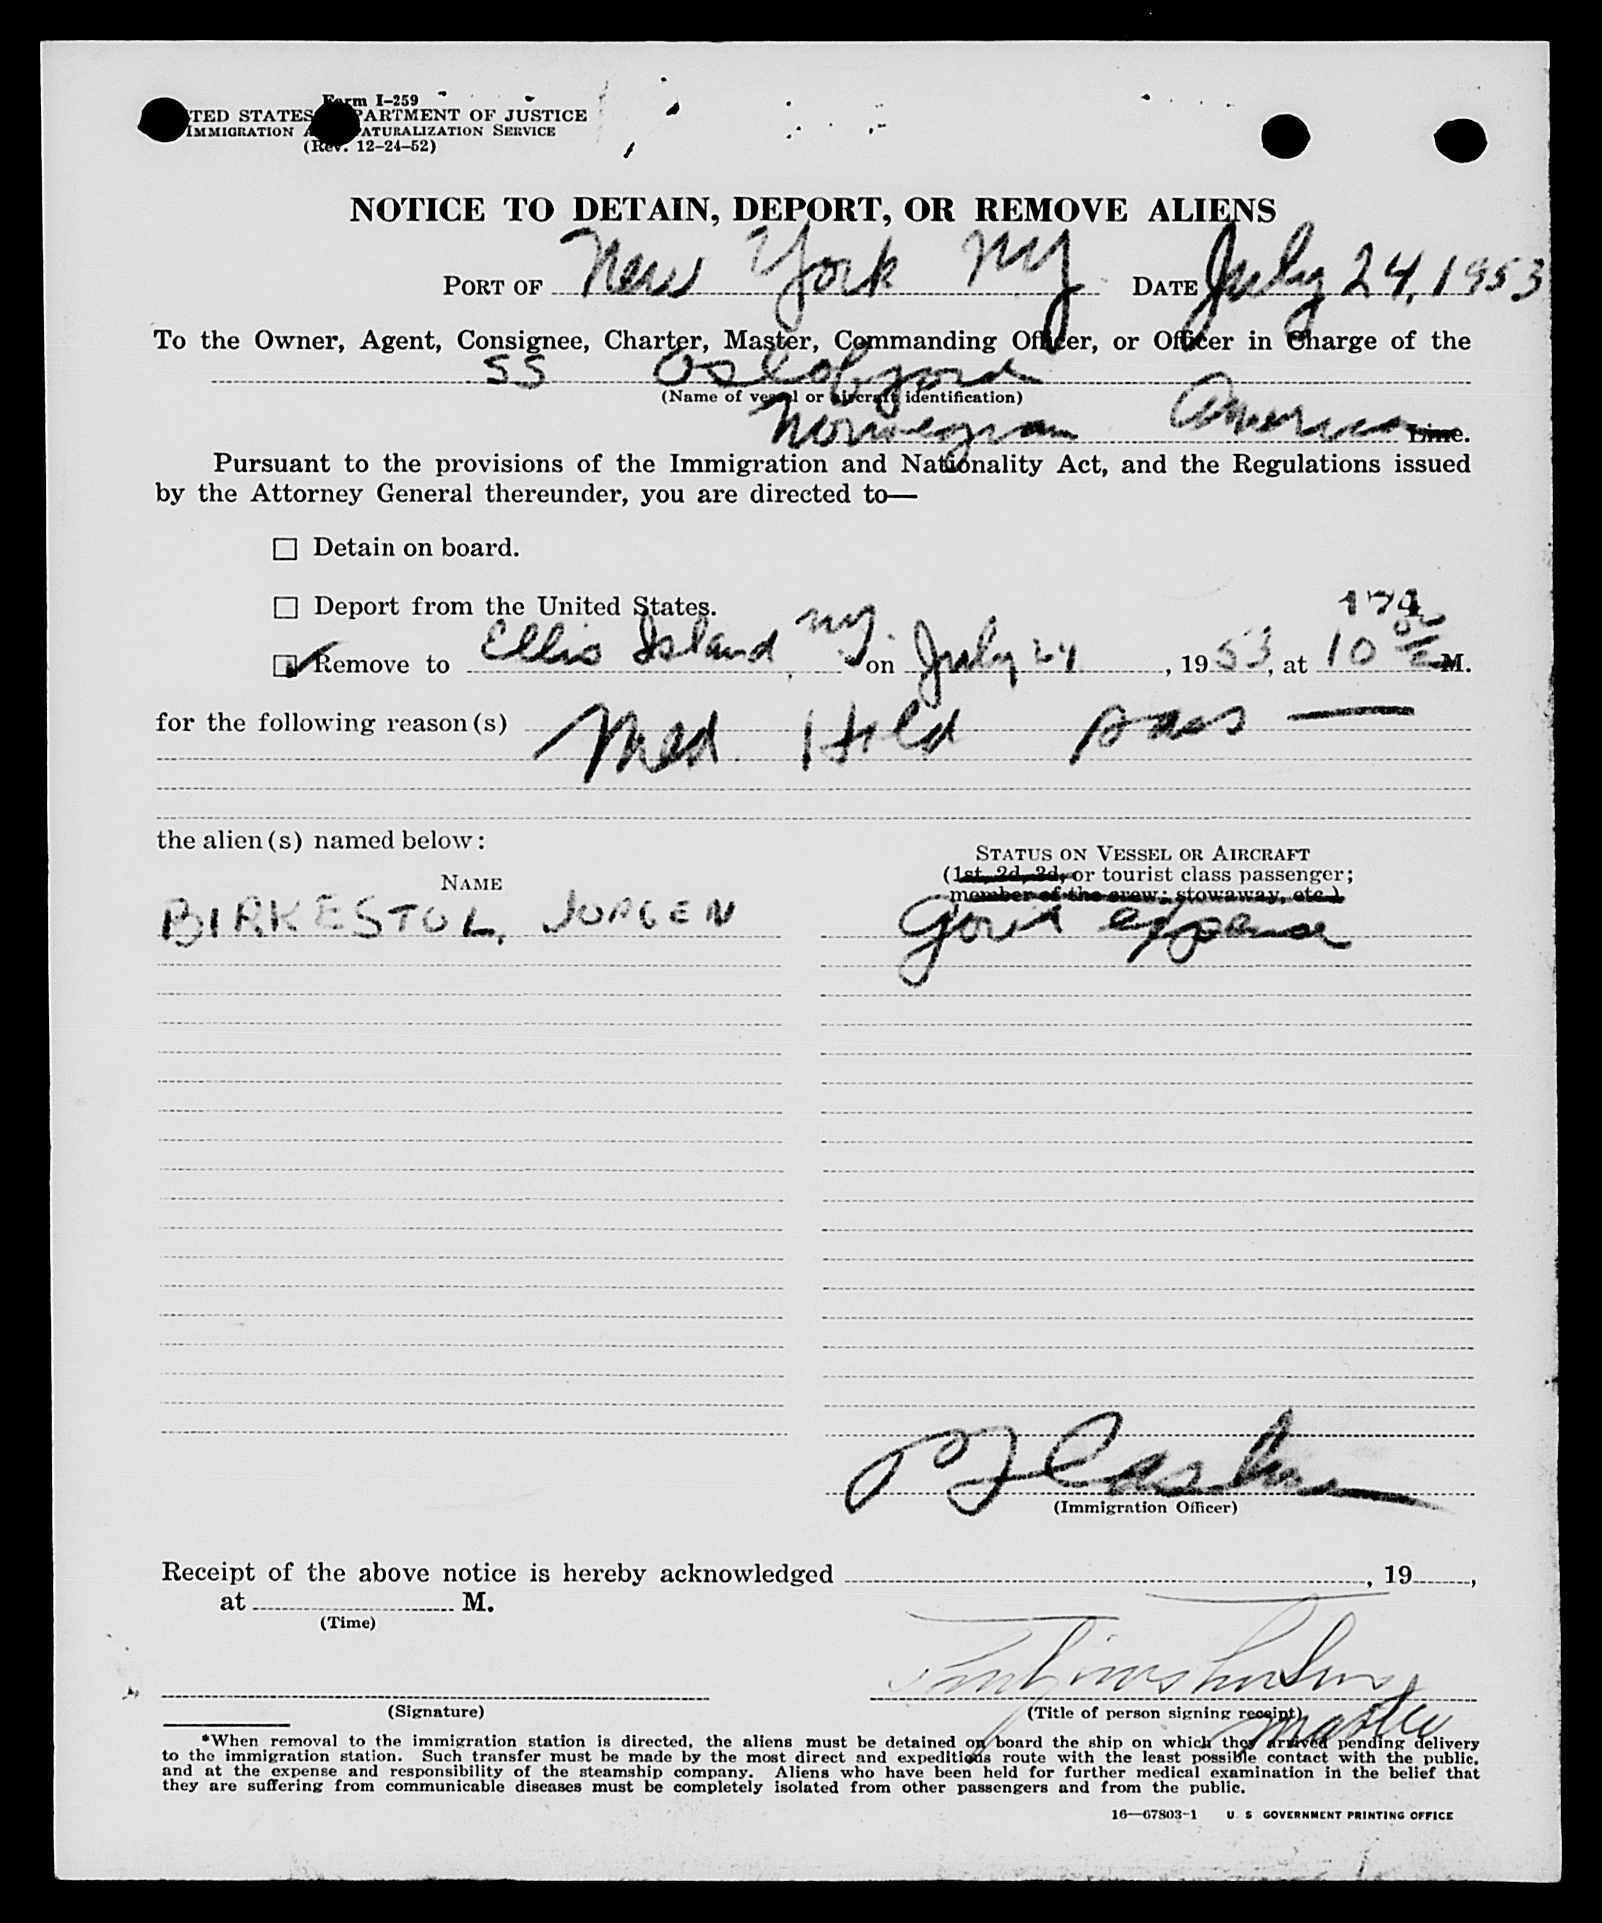 Form I-259
UNITED STATES DEPARTMENT OF JUSTICE
IMMIGRATION AND NATURALIZATION SERVICE
(Rev. 12-24-52)
NOTICE TO DETAIN, DEPORT, OR REMOVE ALIENS
PORT OF New York NY DATE July 24, 1953
To the Owner, Agent, Consignee, Charter, Master, Commanding Officer, or Officer in Charge of the
SS Oslofjord
(Name of vessel or aircraft identification)
Norwegian American Line.
Pursuant to the provisions of the Immigration and Nationality Act, and the Regulations issued
by the Attorney General thereunder, you are directed to—
Detain on board.
Deport from the United States.
174
Remove to Ellis Island, NY. *on July 24, 1953, at 10 M.
for the following reason(s) Med. Hold pass —
the alien(s) named below:
STATUS ON VESSEL OR AIRCRAFT
(1st, 2d, 3d, or tourist class passenger;
member of the crew; stowaway, etc.)
NAME
BIRKESTOL, JORGEN Gov't expense
(Immigration Officer)
Receipt of the above notice is hereby acknowledged , 19 ,
at M.
(Time)
(Signature)
(Title of person signing receipt)
Master
*When removal to the immigration station is directed, the aliens must be detained on board the ship on which they arrived pending delivery
to the immigration station. Such transfer must be made by the most direct and expeditious route with the least possible contact with the public,
and at the expense and responsibility of the steamship company. Aliens who have been held for further medical examination in the belief that
they are suffering from communicable diseases must be completely isolated from other passengers and from the public.
16—67803-1 U. S. GOVERNMENT PRINTING OFFICE